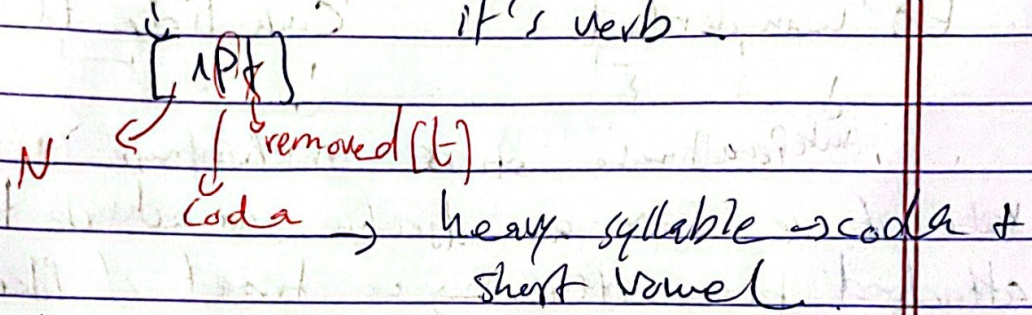 it's verb.
[ʌpt]
N removed [t]
Coda
→ heavy syllable → coda +
short vowel.